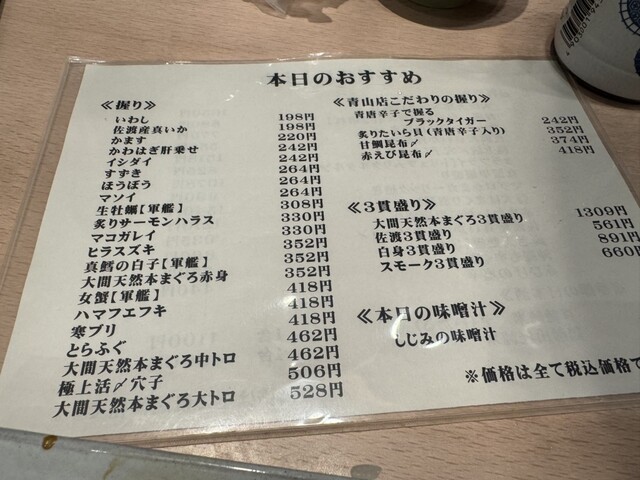 本日のおすすめ
≪握り≫
いわし 198円
佐渡産真いか 198円
かます 220円
かわはぎ肝乗せ 242円
イシダイ 242円
すずき 264円
ほうぼう 264円
マソイ 264円
生牡蠣【軍艦】 308円
炙りサーモンハラス 330円
マコガレイ 330円
ヒラスズキ 352円
真鱈の白子【軍艦】 352円
大間天然本まぐろ赤身 352円
女蟹【軍艦】 418円
ハマフエフキ 418円
寒ブリ 418円
とらふぐ 462円
大間天然本まぐろ中トロ 462円
極上活〆穴子 506円
大間天然本まぐろ大トロ 528円
≪青山店こだわりの握り≫
青唐辛子で握る
ブラックタイガー 242円
炙りたいら貝(青唐辛子入り) 352円
甘鯛昆布〆 374円
赤えび昆布〆 418円
≪3貫盛り≫
大間天然本まぐろ3貫盛り 1309円
佐渡3貫盛り 561円
白身3貫盛り 891円
スモーク3貫盛り 660円
≪本日の味噌汁≫
しじみの味噌汁
※価格は全て税込価格で